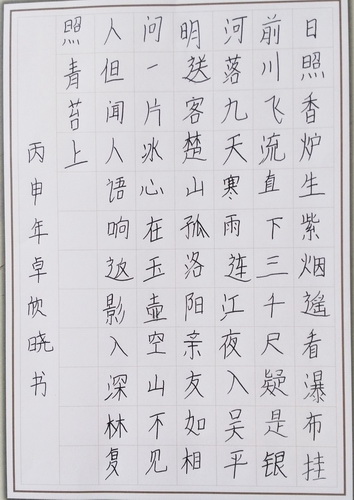 日照香炉生紫烟遥看瀑布挂
前川飞流直下三千尺疑是银
河落九天寒雨连江夜入吴平
明送客楚山孤洛阳亲友如相
问一片冰心在玉壶空山不见
人但闻人语响返影入深林复
照青苔上
丙申年卓欣晓书